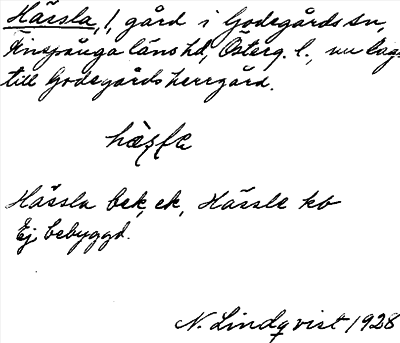 Hässla, /, gård i Godegårds sn,
Finspånga läns hd, Österg. l., nu lagd
till Godegårds herrgård.
hæ̀sla
Hässla bek, ek, Hässle kb
Ej bebyggd.
N. Lindqvist 1928